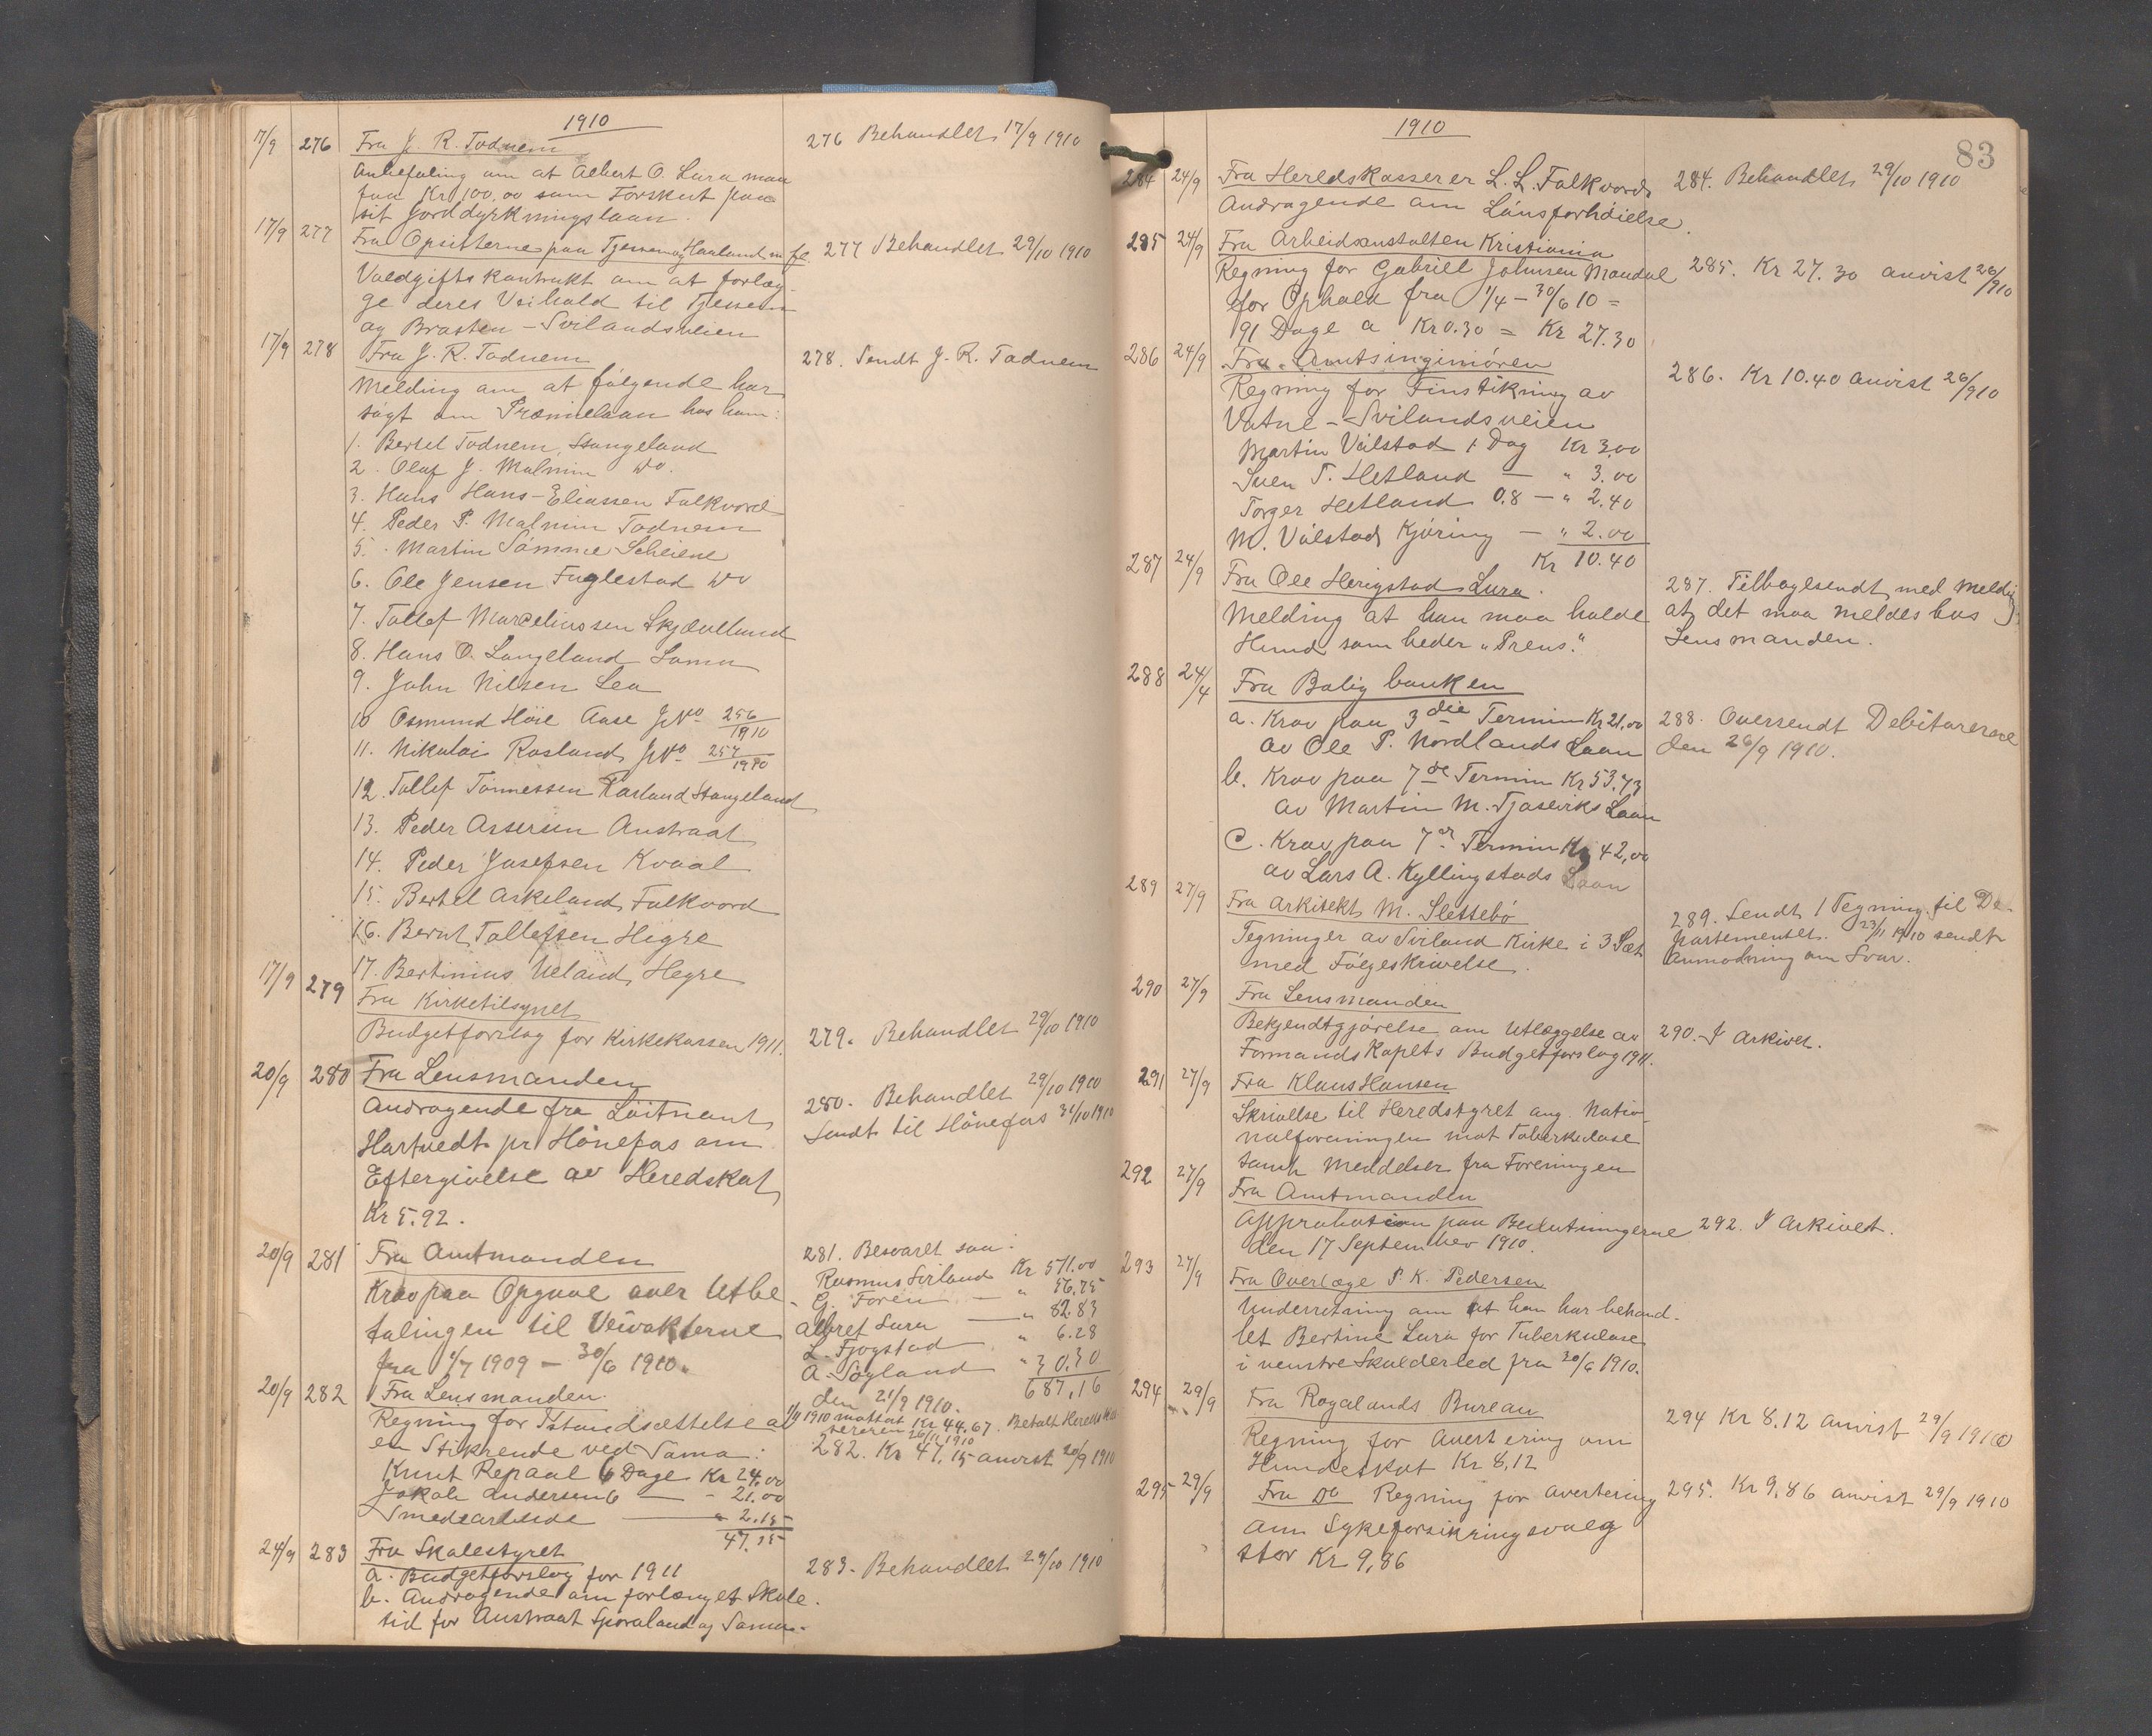 1910
17/9 276 Fra J. R. Todnem
Anbefaling om at Albert O. Lura maa
faa Kr 100,00 som Forskut paa
sit Jorddyrkningslaan.
276 Behandlet 17/9 1910
17/9 277 Fra Opsitterne paa Tjessem og Haarland m fl.
Voldgiftskontrakt om at forlæg-
ge deres Veihold til Tjessem
og Brasten - Svilandsveien
277 Behandlet 29/10 1910
17/9 278 Fra J. R. Todnem
Melding om at følgende har
søgt om Præmielaan hos ham:
278. Sendt J. R. Todnem
1. Bertel Todnem, Stangeland
2. Oluf J. Malmin Do.
3. Hans Hans-Eliassen Folkvord
4. Peder P. Malmin Todnem
5. Martin Sømme Scheiene
6. Ole Jensen Fuglestad Do
7. Tollef Marceliussen Skjævlland
8. Hans O. Langeland Soma
9. John Nilsen Lea
10 Osmund Høie Aase JNo 256/1910
11. Nikolai Rosland JNo 257/1910
12. Tollef Tønnessen Stangeland
13. Peder Assersen Austraat
14. Peder Josefsen Kvaal
15. Bertel Askeland, Folkvord
16. Bernt Tollefsen Høgre
17. Bertinius Ueland, Høgre
17/9 279 Fra Kirketilsynet
Budgetforslag for Kirkekassen 1911.
279. Behandlet 29/10 1910
20/9 280 Fra Lensmanden
Andragende fra Løitnant
Hartvedt pr Hønefos om
Eftergivelse av Heredskat
Kr 5.92.
280. Behandlet 29/10 1910
Sendt til Hønefos 31/10 1910
20/9 281 Fra Amtmanden
Krav paa Opgave over Utbe-
talingen til Veivokterne
fra 1/7 1909 - 30/6 1910.
281. Besvaret saa:
Rasmus Sviland Kr 511.00
G. Foren — " 56,75
Albret Lura — " 82.83
L. Fjogstad " 6.28
A. Søyland " 30.30
687,16
den 21/9 1910.
1/11 1910 mottat Kr 44.67. Betalt Hereds Kas
sereren 26/11 1910
20/9 282 Fra Lensmanden.
Regning for Istandsættelse av
en Stikrende ved Soma:
Knut Repaal 6 Dage Kr 24.00
Jakob Andersen 6 — - 21.00
Smedearbeide — " 2.15
47.15
282. Kr 47,15 anvist 20/9 1910
24/9 283 Fra Skolestyret
a. Budgetforslag for 1911
b. Andragende om forlænget Skole-
tid for Austraat Sporaland og Soma.
283. Behandlet 29/10 1910
1910
83
284 24/9 Fra Heredskasserer L. L. Folkvord
Andragende om Lønsforhøielse.
284. Behandlet 29/10 1910
285 24/9 Fra Arbeidsanstalten Kristiania
Regning for Gabriel Johnsen Mandal
for Ophold fra 1/4 - 30/6 10 =
91 Dage a Kr 0.30 = Kr 27.30
285. Kr 27.30 anvist 26/9 10
286 24/9 Fra Amtsingeniøren
Regning for Finstikning av
Vatne - Svilandsveien
Martin Vølstad 1 Dag Kr 3.00
Sven T. Hetland — " 3.00
Torger Hetland 0.8 — " 2.40
M. Vølstad Kjøring — " 2.00
Kr 10.40
286. Kr 10.40 anvist 26/9 10
287 24/9 Fra Ole Herigstad Lura.
Melding at han maa holde
Hund som heder "Prens."
287. Tilbagesendt med Meldig
at det maa meldes hos
Lensmanden.
288 24/4 Fra Boligbanken
a. Krav paa 3die Termin Kr 21,00
av Ole P. Nordlands Laan
b. Krav paa 7de Termin Kr 53.73
av Martin M. Tjoseviks Laan
c. Krav paa 7de Termin Kr 42,00
av Lars A. Kyllingstads Laan
288. Oversendt Debitorerne
den 26/9 1910.
289 27/9 Fra Arkitekt M. Slettebø
Tegninger av Sviland Kirke i 3 Sæt
med Følgeskrivelse.
289. Sendt 1 Tegning til De-
partementet. 23/11 1910 sendt
Anmodning om Svar.
290 27/9 Fra Lensmanden
Bekjendtgjørelse om Utlæggelse av
Formandskapets Budgetforslag 1911.
290. I Arkivet.
291 27/9 Fra Klaus Hansen
Skrivelse til Heredstyret ang. Natio-
nalforeningen mot Tuberkulose
samt Meddelser fra Foreningen
292 27/9 Fra Amtmanden
Approbation paa Beslutningerne
den 17 September 1910.
292. I Arkivet.
293 27/9 Fra Overlæge P. K. Pedersen
Underretning om at han har behand-
let Bertine Lura for Tuberkulose
i venstre Skulderled fra 30/6 1910.
294 29/9 Fra Rogalands Bureau
Regning for Avertering om
Hundeskat Kr 8,12
294 Kr 8.12 Anvist 29/9 1910
295 29/9 Fra Do Regning for Avertering
om Sykeforsikringsvalg
stor Kr 9,86
295. Kr 9,86 anvist 29/9 1910